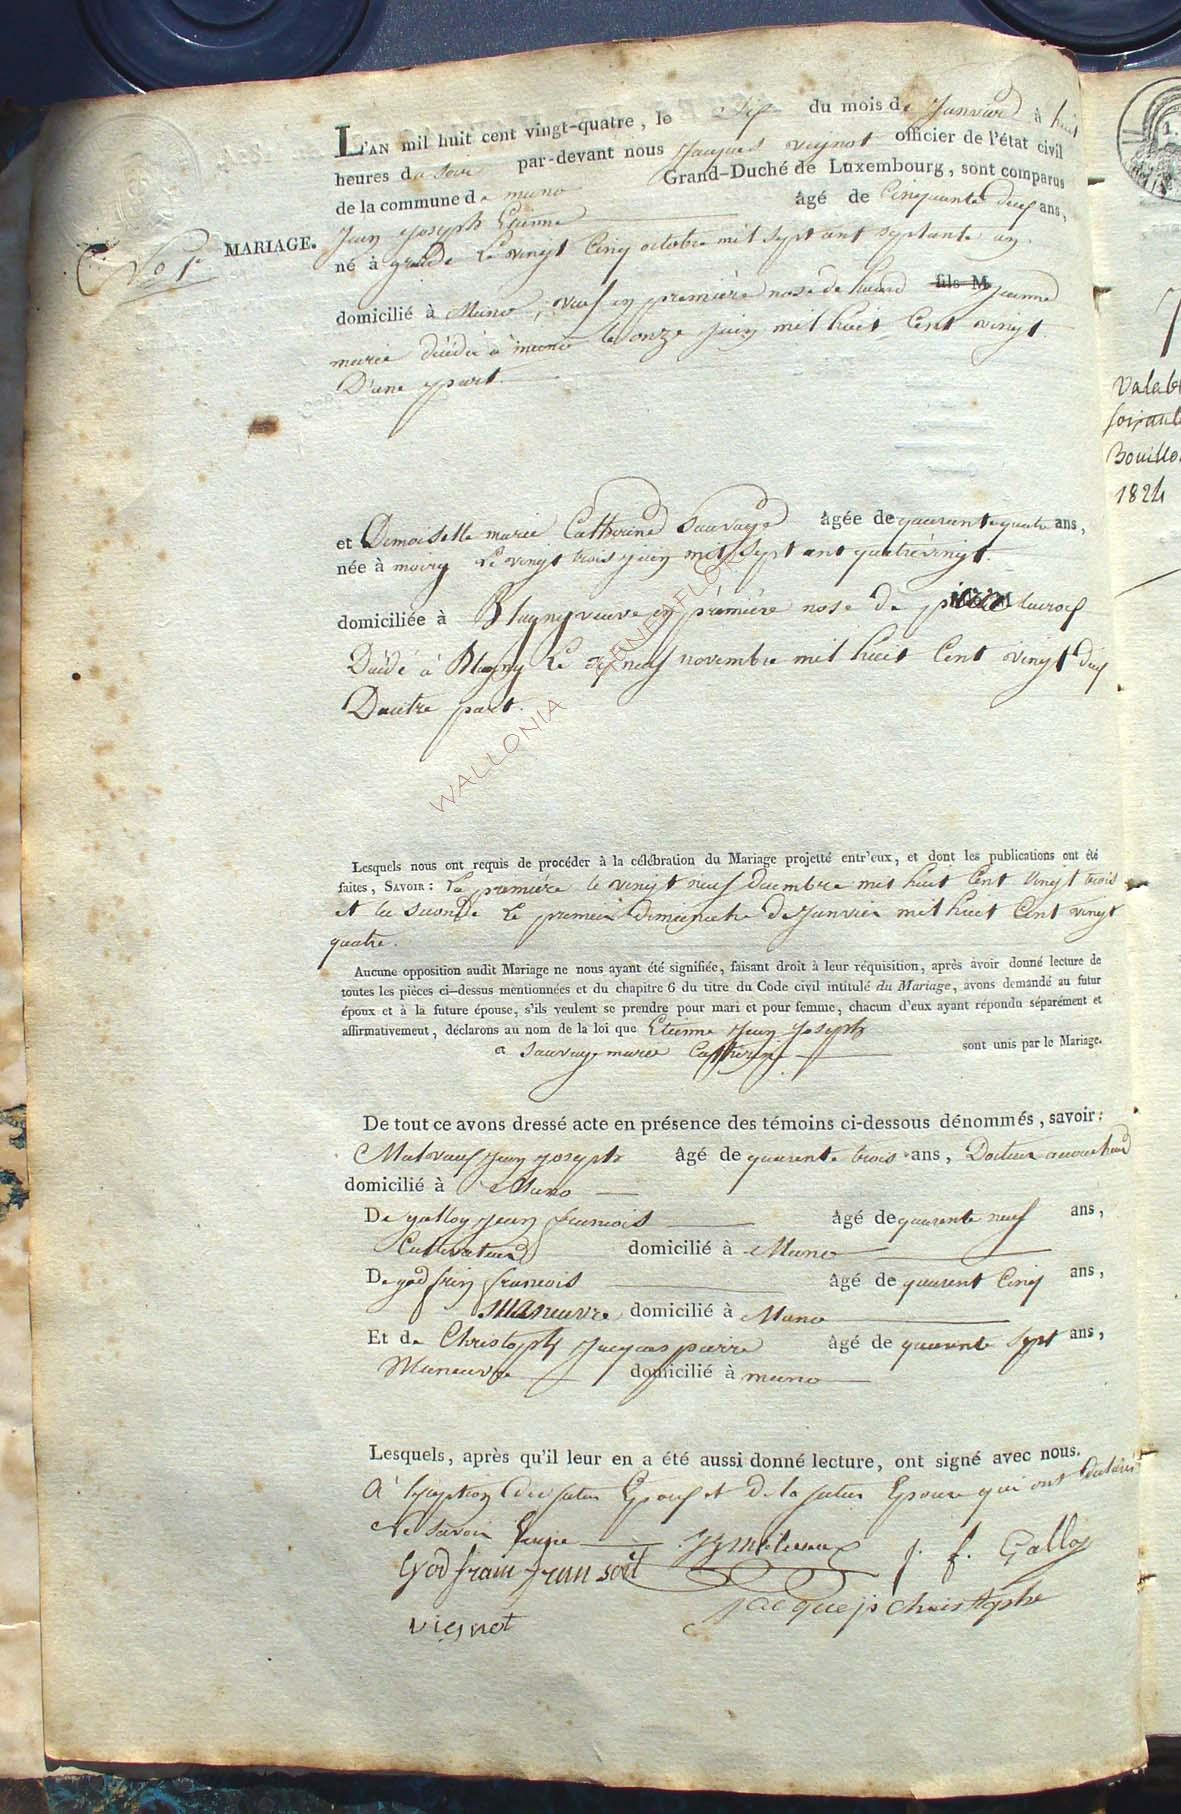 L'AN mil huit cent vingt-quatre, le dix du mois de Janvier à huit
heures du soir par-devant nous Jacques viegnot officier de l'état civil
de la commune de muno Grand-Duché de Luxembourg, sont comparus
Jean Joseph Etienne âgé de Cinquante deux ans,
MARIAGE.
No 1er
né à le vingt Cinq octobre mil sept cent septante un
domicilié à Muno, veuf en première nose de fils M Jeanne
marie décédée à muno le onze juin mil huit Cent vingt
D'une part.
et Demoiselle marie Catherine Sauvage âgée de quarante quatre ans,
née à moiry le vingt trois juin mil sept cent quatrévingt.
domiciliée à Blagny veuve en prémière nose de
Décédé à Blagny le dix neuf novembre mil huit Cent vingt deux
Dautre part.
WALLONIA
Lesquels nous ont requis de procéder à la célébration du Mariage projetté entr'eux, et dont les publications ont été
faites, SAVOIR : La première le vingt neuf decembre mil huit Cent vingt trois
et la seconde le premier dimanche de Janvier mil huit Cent vingt
quatre.
Aucune opposition audit Mariage ne nous ayant été signifiée, faisant droit à leur réquisition, après avoir donné lecture de
toutes les pièces ci-dessus mentionnées et du chapitre 6 du titre du Code civil intitulé du Mariage, avons demandé au futur
époux et à la future épouse, s'ils veulent se prendre pour mari et pour femme, chacun d'eux ayant répondu séparément et
affirmativement, déclarons au nom de la loi que Etienne Jean Joseph
a Sauvage marie Catherine sont unis par le Mariage.
De tout ce avons dressé acte en présence des témoins ci-dessous dénommés, savoir :
Jean Joseph âgé de quarente trois ans, Docteur
domicilié à Muno
De galloy Jean francois âgé de quarente neuf ans,
Cultivateur domicilié à Muno
De godfrin francois âgé de quarent Cinq ans,
maneuvre domicilié à Muno
Et de Christoph Jacques pierre âgé de quarente sept ans,
Maneuvre domicilié à muno
Lesquels, après qu'il leur en a été aussi donné lecture, ont signé avec nous.
A du futur Epoux et de la future Epouse qui ont
Ne savoir
godfrain fransoit j. f. Galloy
viegnot Jacque jp christophe
1824